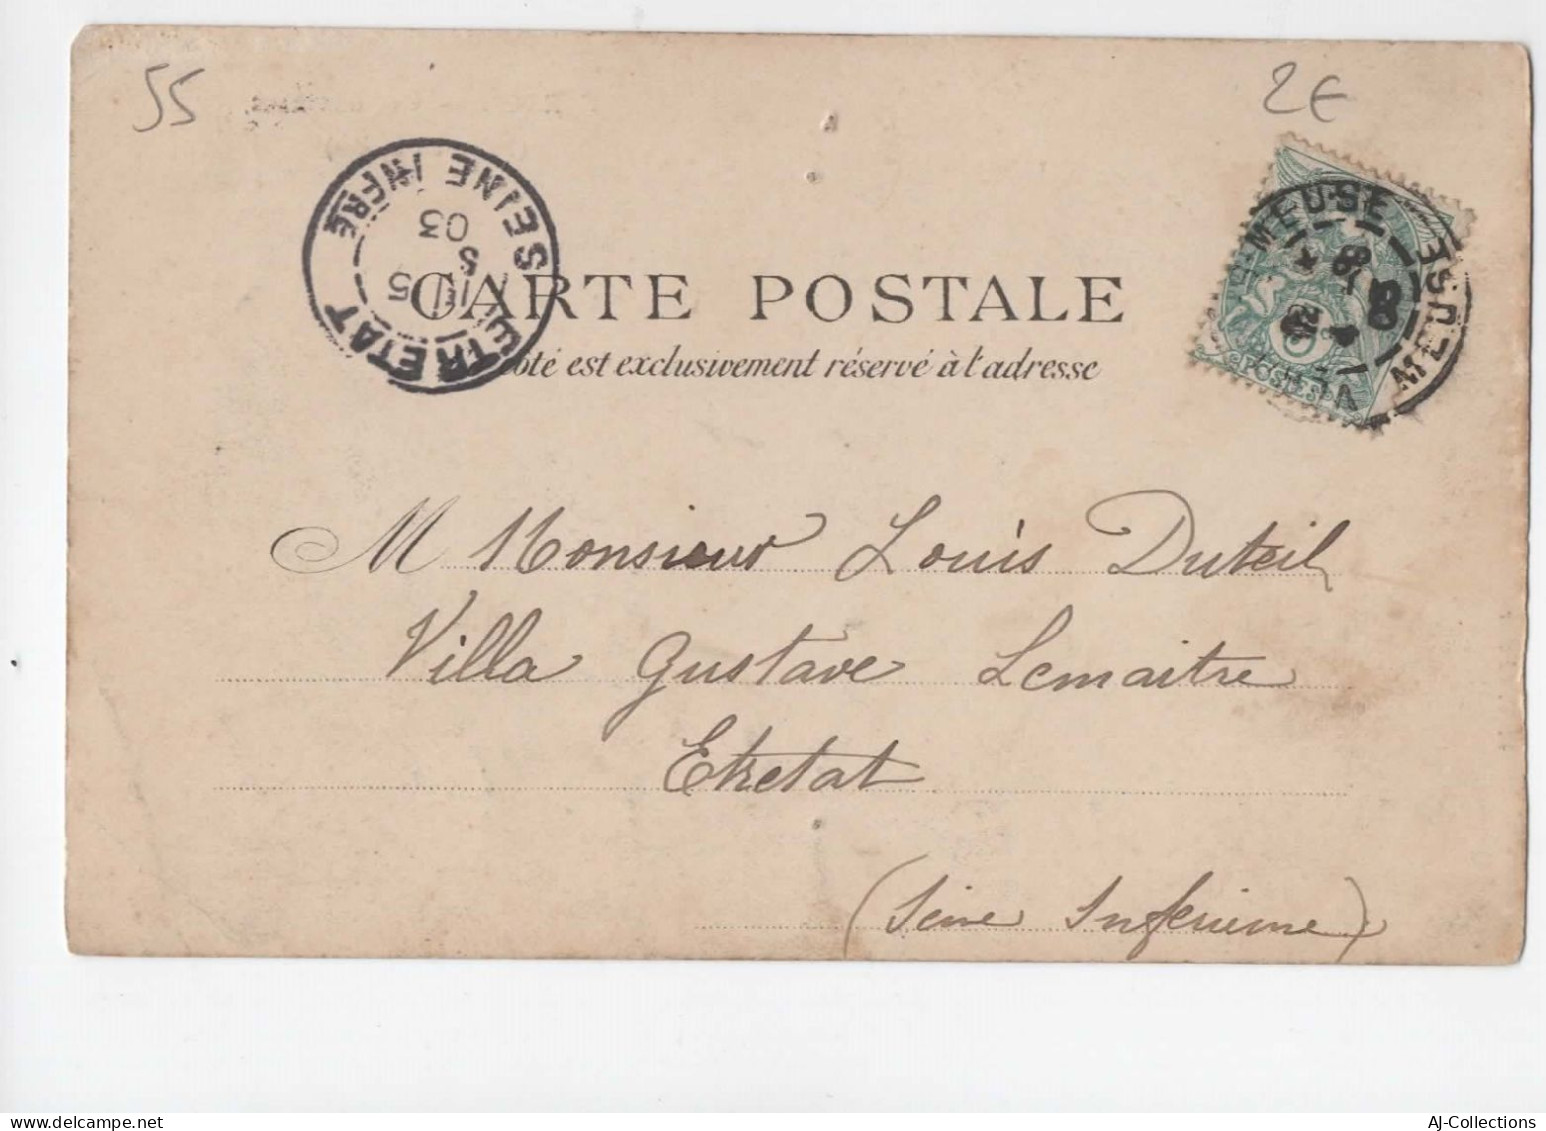 55
2€
ETRETAT SEINE INFRE
5
5
03
MEUSE
MEUSE
5
POSTES
CARTE POSTALE
côté est exclusivement réservé à l'adresse
M Monsieur Louis Duteil
Villa Gustave Lemaitre
Etretat
(Seine Inferieure)
AJ-Collections